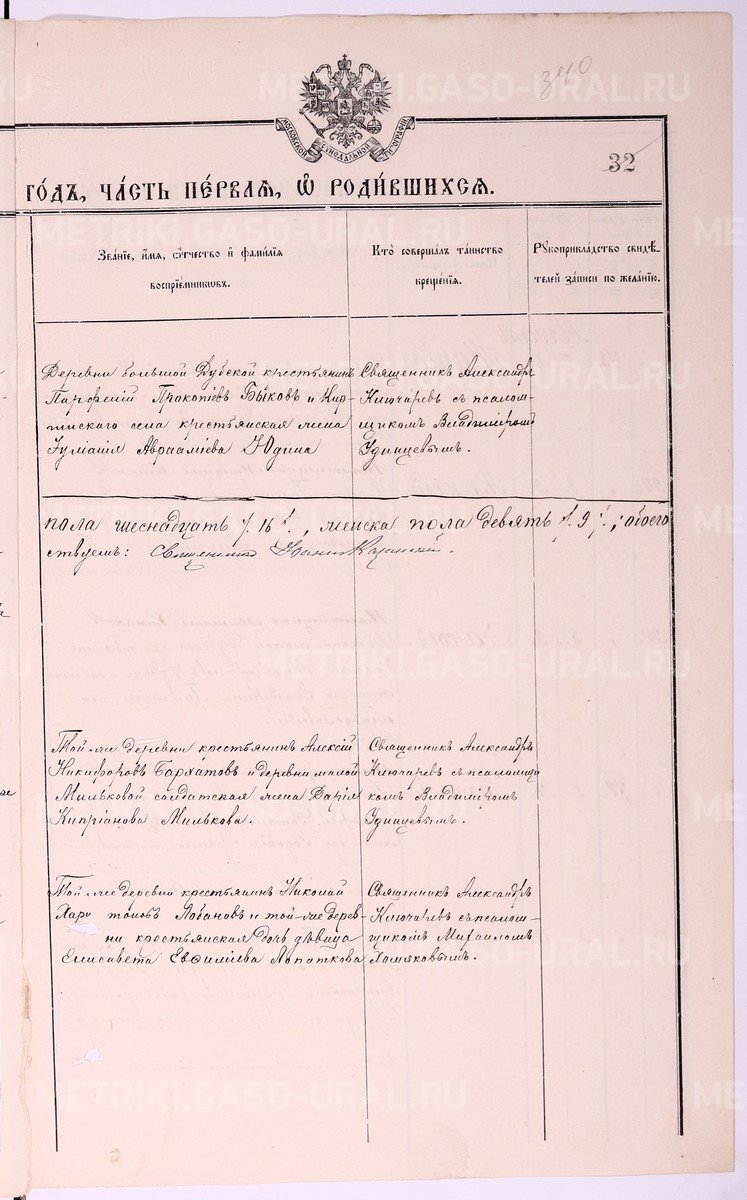 340
МОСКОВСКОЙ СѴНОДАЛЬНОЙ ТИПОГРАФІИ
32
ГОДЪ, ЧАСТЬ ПЕРВАЯ, Ѡ РОДИВШИХСЯ.
Званіе, имя, отчество и фамилія
воспріемниковъ.
Кто совершалъ таинство
крещенія.
Рукоприкладство свидѣ-
телей записи по желанію.
Деревни большой Дубской крестьянинъ
Парфеній Прокопіевъ Быковъ и Кир-
гинскаго села крестьянская жена
Іуліанія Авраамiева Юдина
Священникъ Александръ
Ключаревъ съ псалом-
щикомъ Владиміромъ
Удинцевымъ.
пола шеснадцать /. 16 /., женска пола девять /. 9 /.; обоего
ствуемъ: Священникъ Іоаннъ
Той же деревни крестьянинъ Алексій
Никифоровъ Бархатовъ и деревни малой
Мильковой солдатская жена Дарія
Кипріанова Милькова.
Священникъ Александръ
Ключаревъ съ псаломщи
комъ Владиміромъ
Удинцевымъ.
Той же деревни крестьянинъ Николай
Харитоновъ Лобановъ и той же дерев-
ни крестьянская дочь дѣвица
Елисавета Евѳиміева Лопаткова
Священникъ Александръ
Ключаревъ съ псалом-
щикомъ Михаиломъ
Хомяковымъ.
METRIKI.GASO-URAL.RU